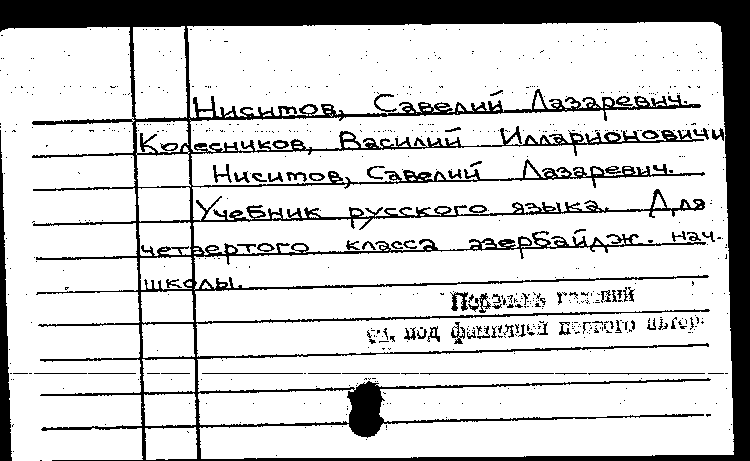 Ниситов, Савелий Лазаревич.
Колесников, Василий Илларионовичи
Ниситов, Савелий Лазаревич.
Учебник русского языка. Для
четвертого класса азербайдж. нач.
школы.
Перечень изданий
см. под фамилией первого автора